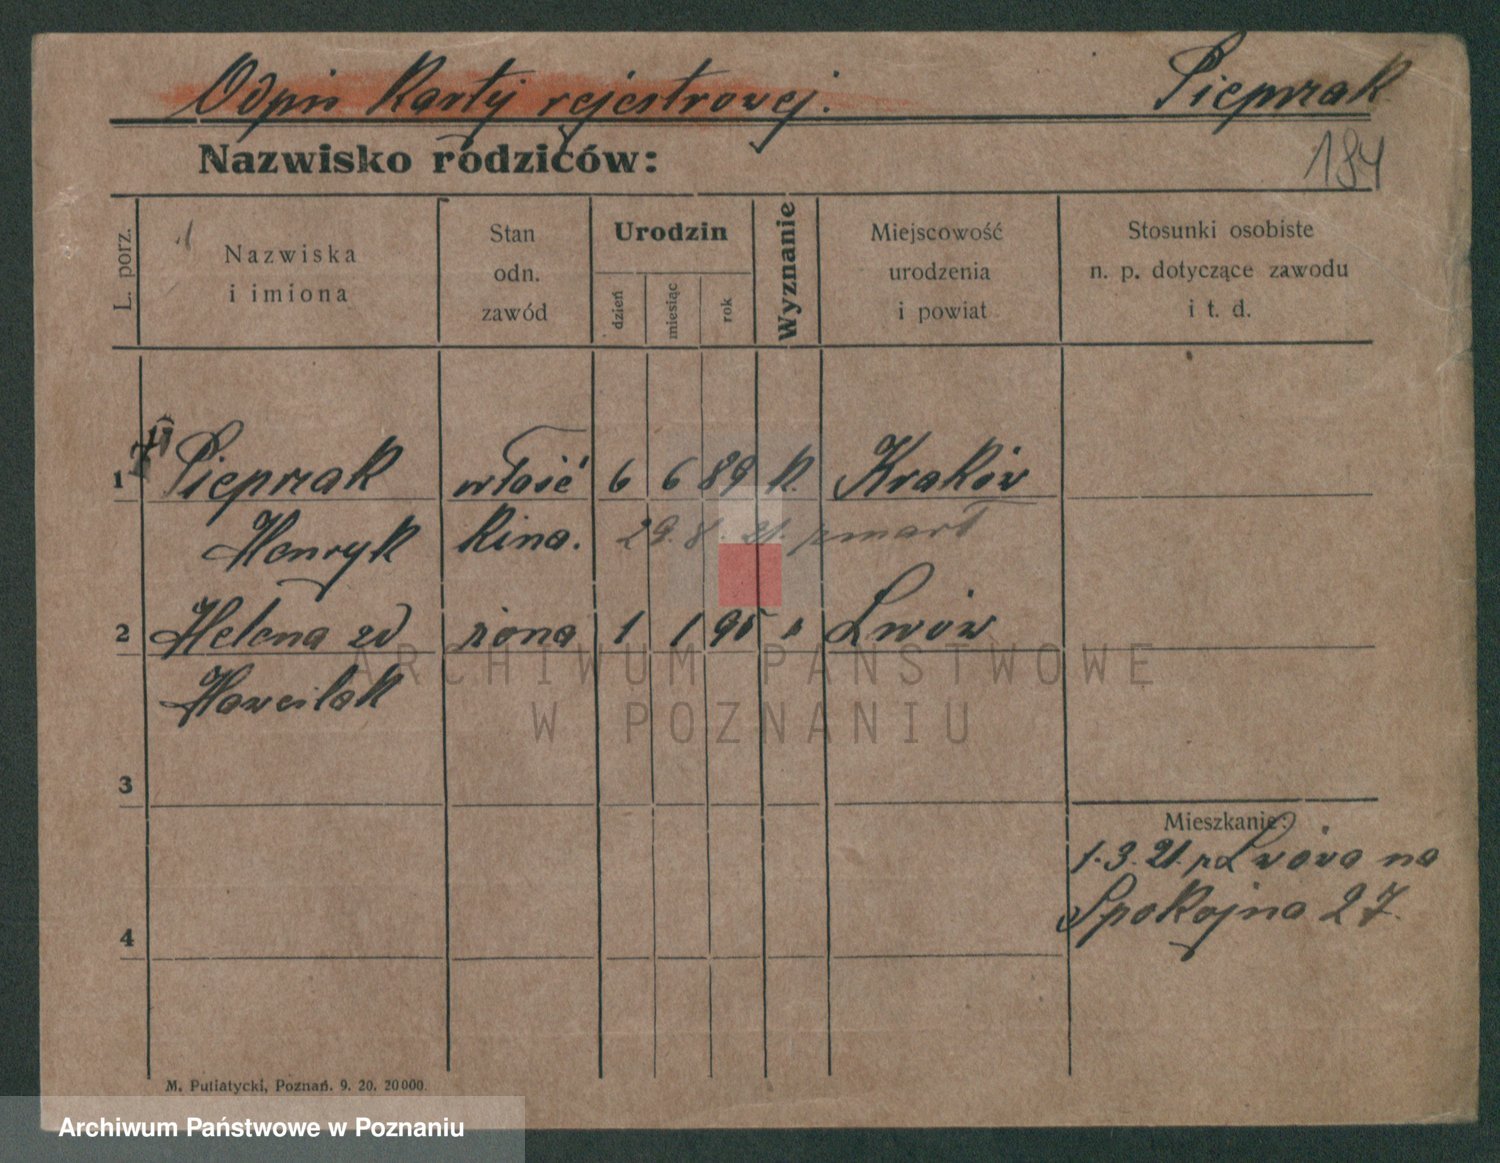 Odpis Karty rejestrowej. Pieprzak
Nazwisko rodziców: 184
L. porz.
Nazwiska
i imiona
Stan
odn.
zawód
Urodzin
dzień
miesiąc
rok
Wyznanie
Miejscowość
urodzenia
i powiat
Stosunki osobiste
n. p. dotyczące zawodu
i t. d.
1 Pieprzak włość 6 6 89 k. Kraków
Henryk kina. 29. 8. 21. zmarł
2 Helena zd żona 1 1 95 Lwów
3
Mieszkanie:
1. 3. 21. z Lwowa na
Spokojna 27.
4
M. Putiatycki, Poznań. 9. 20. 20000.
ARCHIWUM PAŃSTWOWE
W POZNANIU
Archiwum Państwowe w Poznaniu